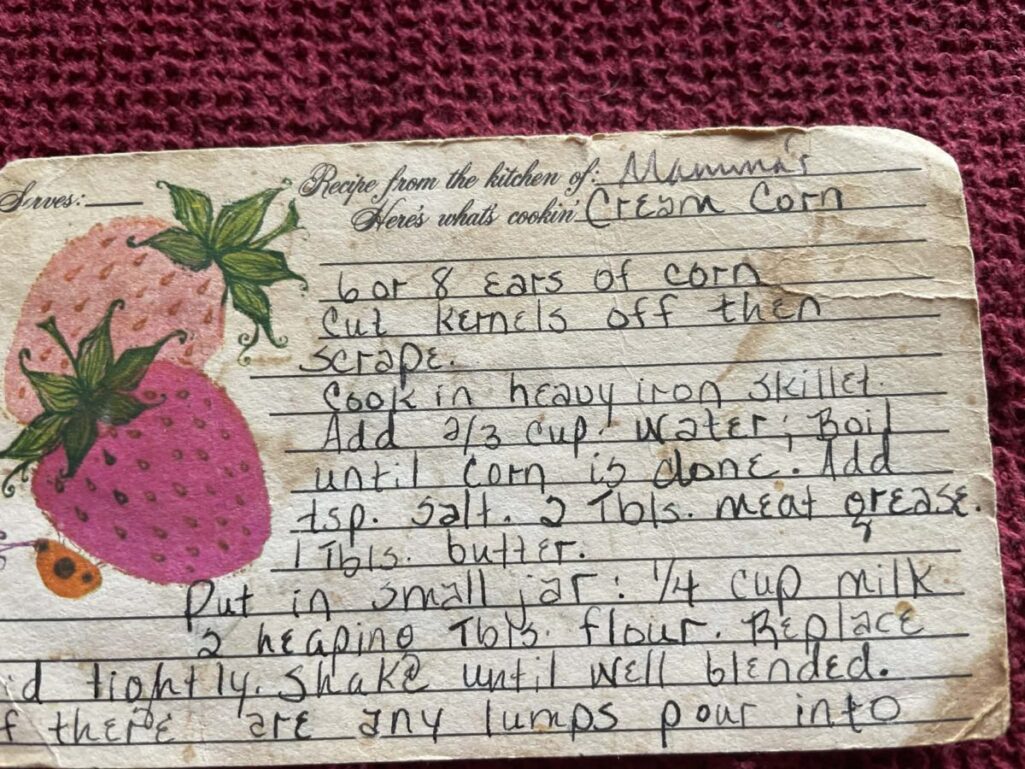 Serves:
Recipe from the kitchen of: Mamma's
Here's what's cookin' Cream Corn
6 or 8 ears of corn
Cut kernels off then
scrape.
Cook in heavy iron skillet.
Add 2/3 cup water; Boil
until corn is done. Add
tsp. salt. 2 Tbls. meat grease.
1 Tbls. butter.
Put in small jar: 1/4 cup milk
2 heaping Tbls. flour. Replace
id tightly. Shake until well blended.
f there are any lumps pour into